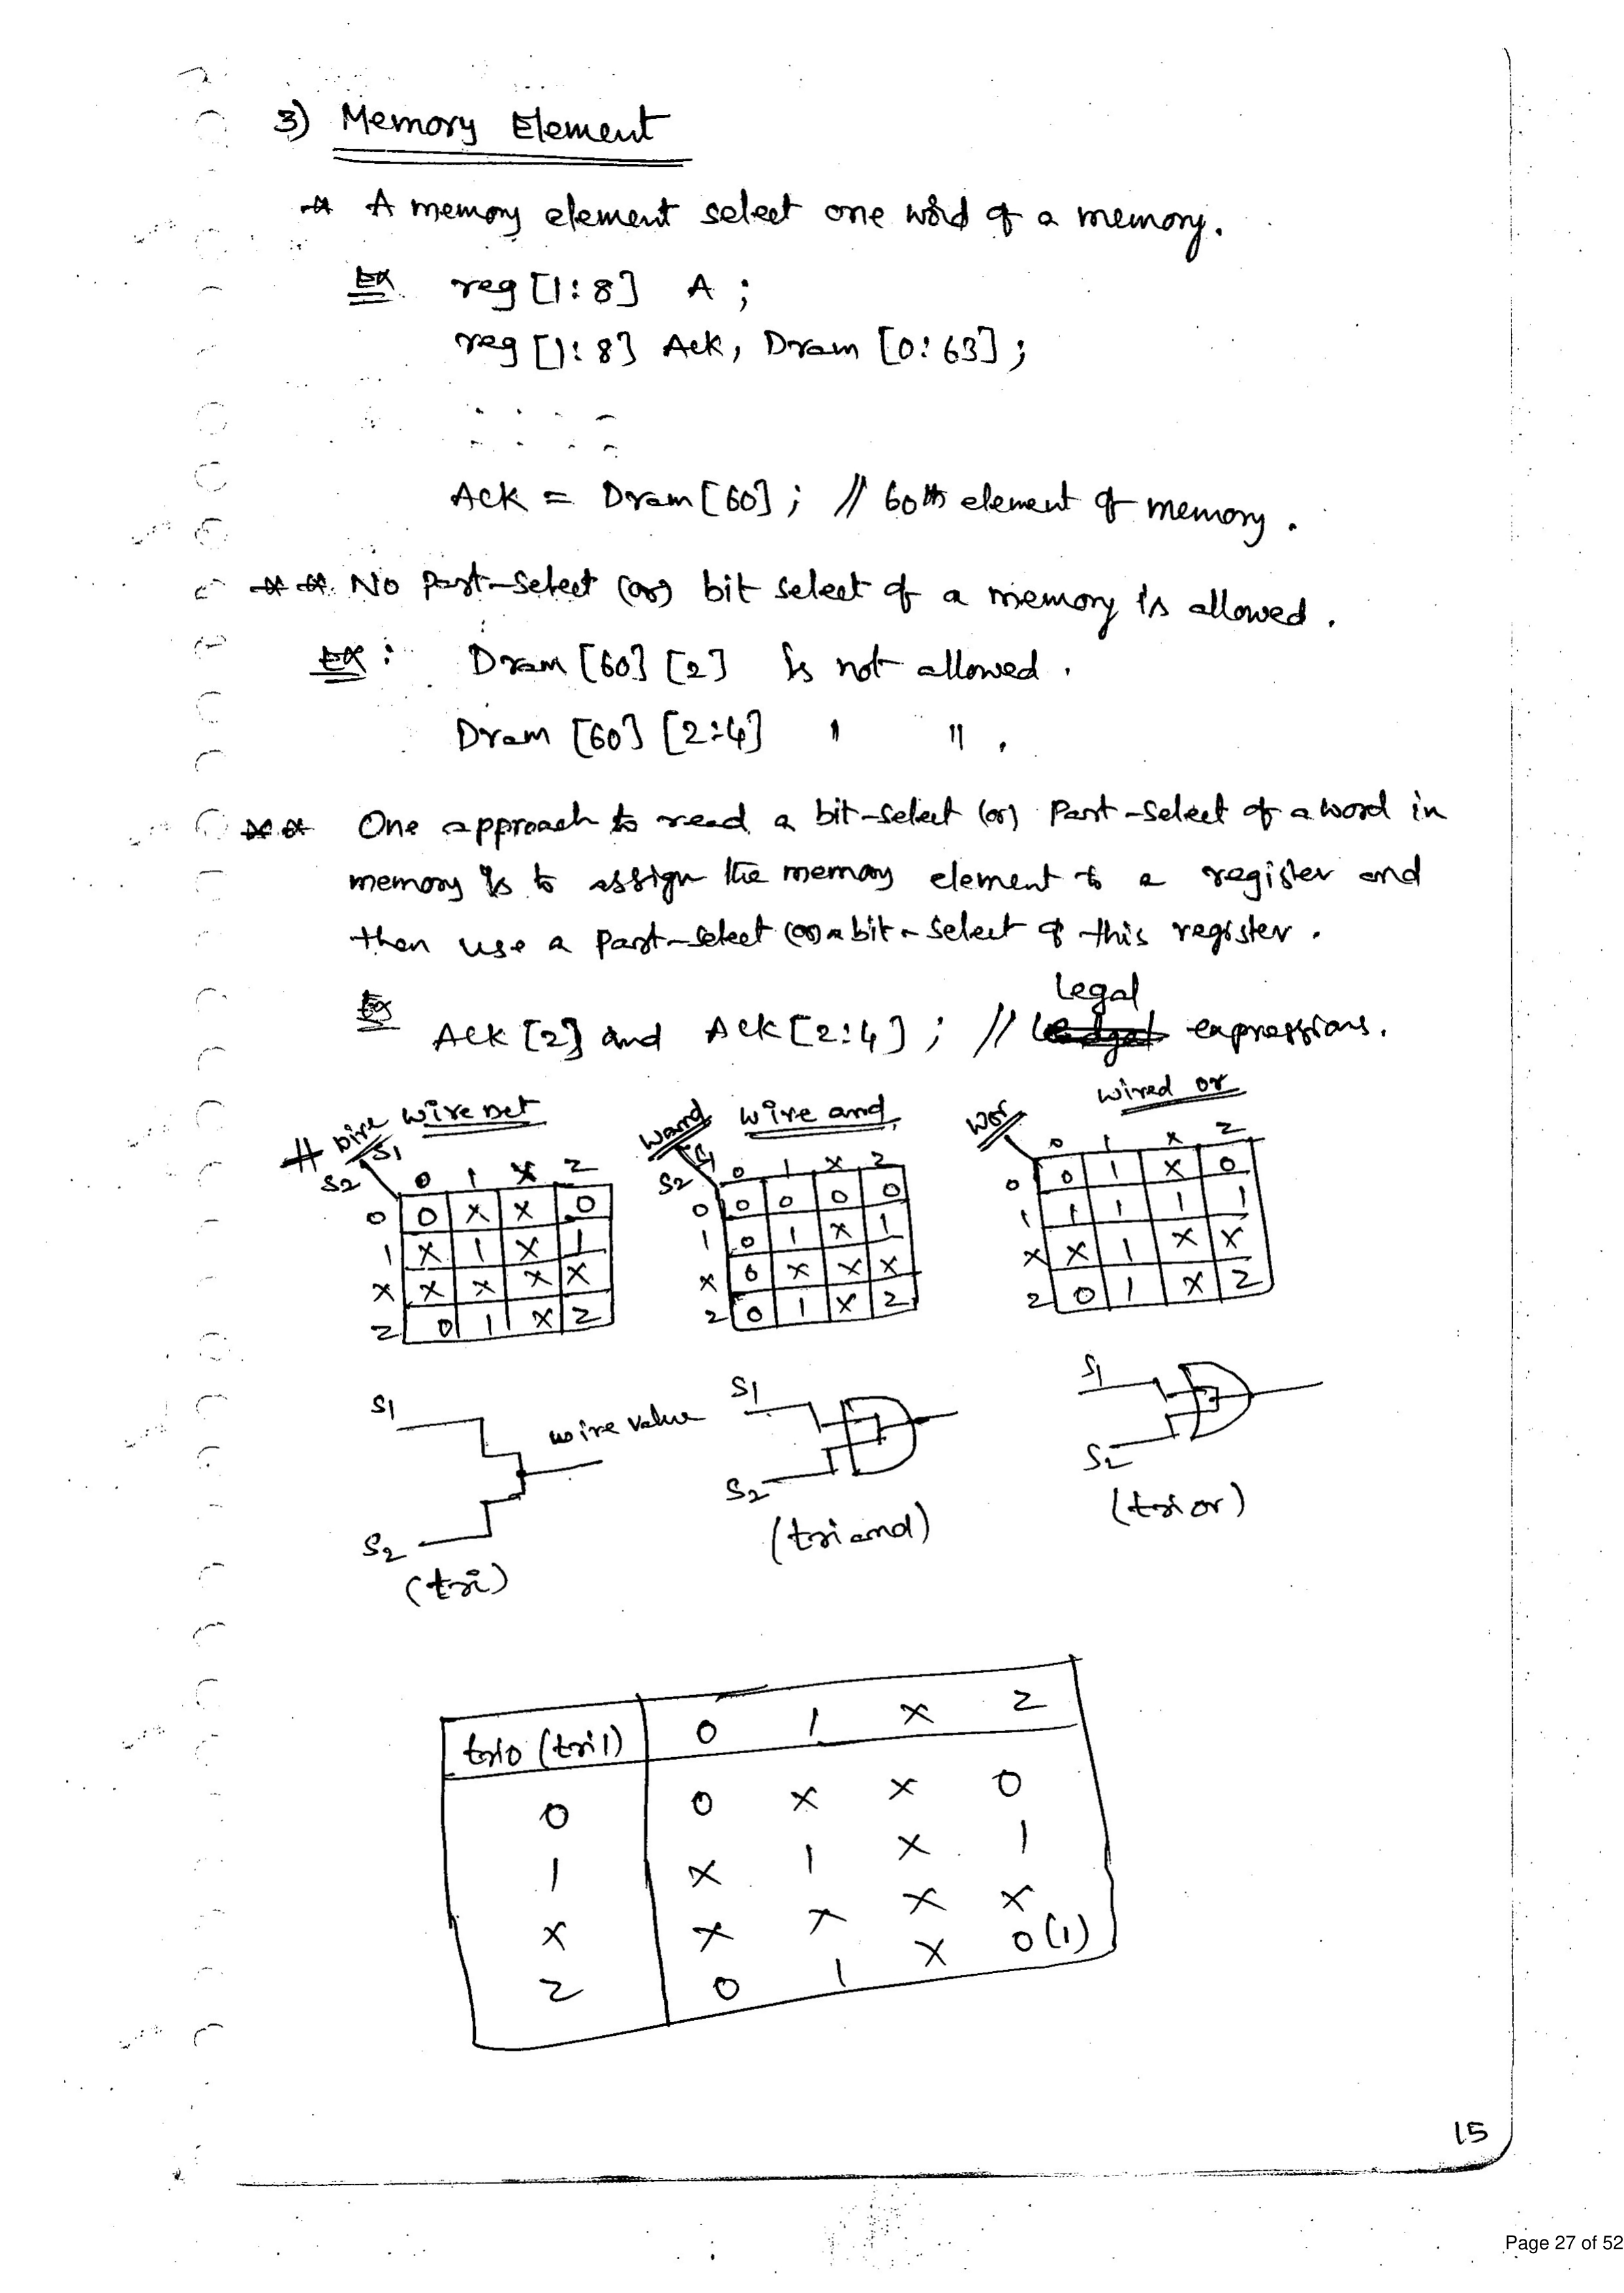 3) Memory Element
* A memory element select one word of a memory.
Ex reg [1:8] A ;
reg [1:8] Ack, Dram [0:63] ;
Ack = Dram [60] ; // 60th element of memory.
** No Part-Select (or) bit select of a memory is allowed.
Ex : Dram [60] [2] is not allowed.
Dram [60] [2:4] " " .
** One approach to read a bit-select (or) Part-Select of a word in
memory is to assign the memory element to a register and
then use a Part-select (or) a bit-select of this register.
Legal
Ex Ack [2] and Ack [2:4] ; // expressions.
# wire net
S1
S2 0 1 x z
0 0 x x 0
1 x 1 x 1
x x x x x
z 0 1 x z
wand wire and,
S1
S2 0 1 x z
0 0 0 0 0
1 0 1 x 1
x 0 x x x
z 0 1 x z
wor wired or
0 1 x z
0 0 1 x 0
1 1 1 1 1
x x 1 x x
z 0 1 x z
S1
wire value
S2
(tri)
S1
S2
(triand)
S1
S2
(trior)
tri0 (tri1) 0 1 x z
0 0 x x 0
1 x 1 x 1
x x x x x
z 0 1 x 0(1)
15
Page 27 of 52